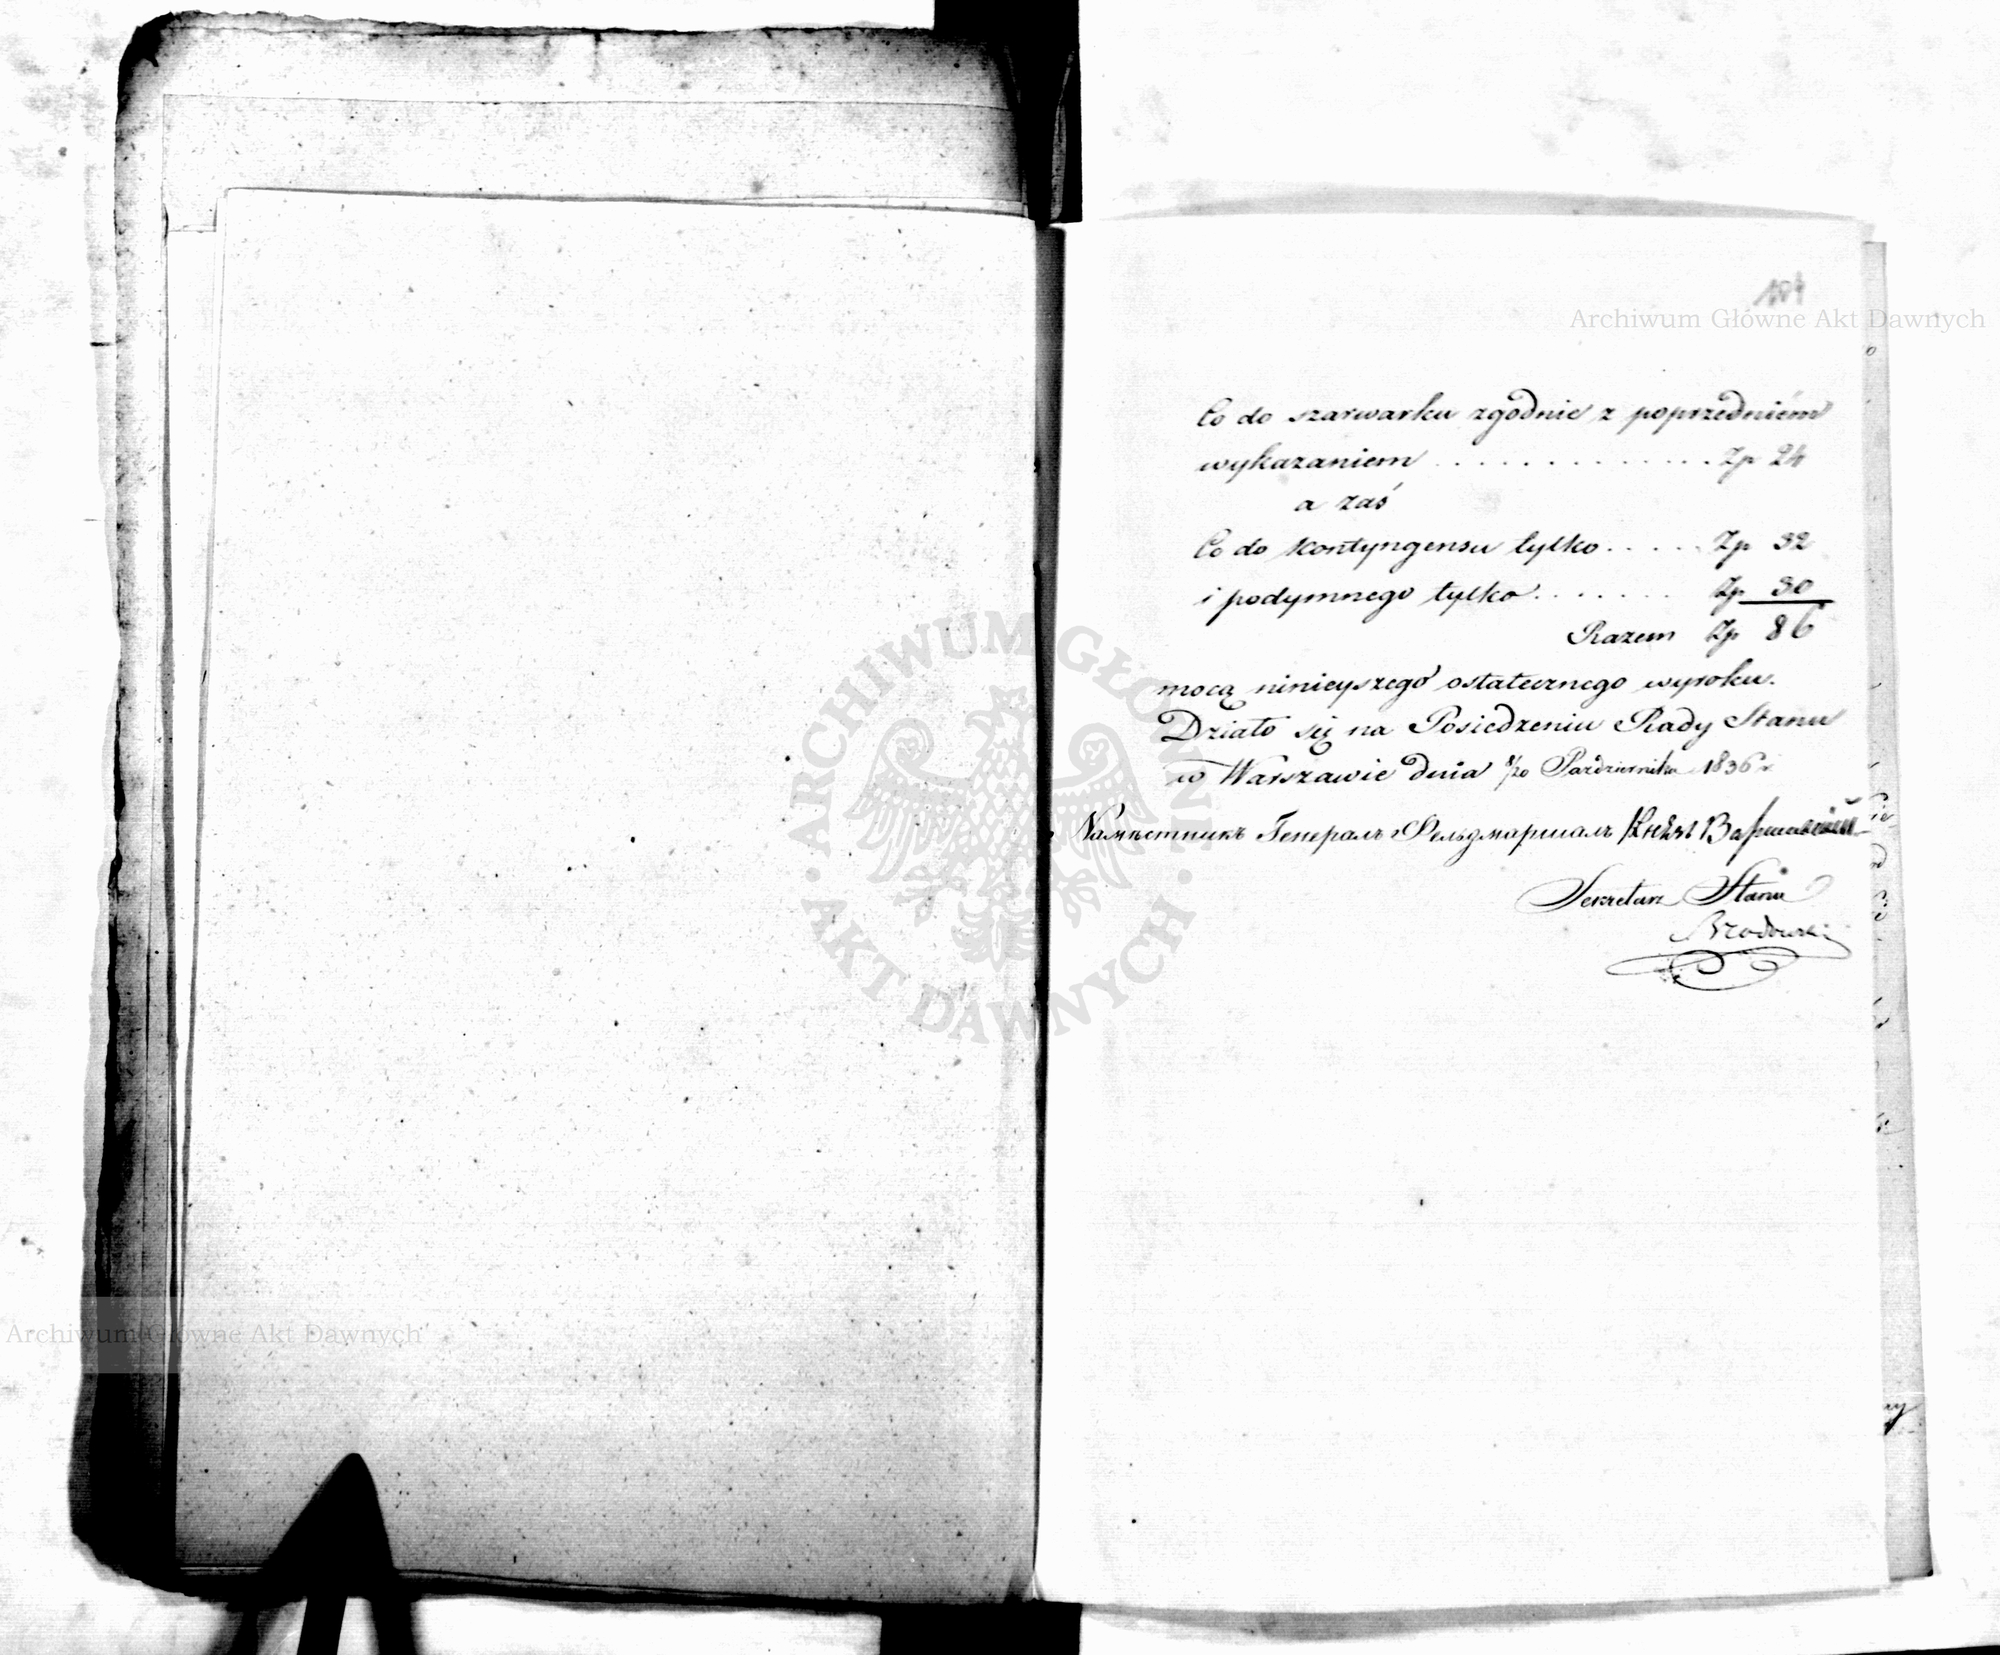 Archiwum Główne Akt Dawnych
Co do szarwarku zgodnie z poprzedniém
wykazaniem . . . . . . . . . . . . . Zp 24
a zaś
Co do kontyngensu tylko . . . . . Zp 32
i podymnego tylko . . . . . . . Zp 30
Razem Zp 86
mocą ninieyszego ostatecznego wyroku.
Działo się na Posiedzeniu Rady Stanu
w Warszawie dnia 8/20 Października 1836 r
Намѣстникъ Генералъ Фельдмаршалъ Князь Варшавскiй
Sekretarz Stanu
Brodowski
ARCHIWUM GŁÓWNE AKT DAWNYCH
Archiwum Główne Akt Dawnych